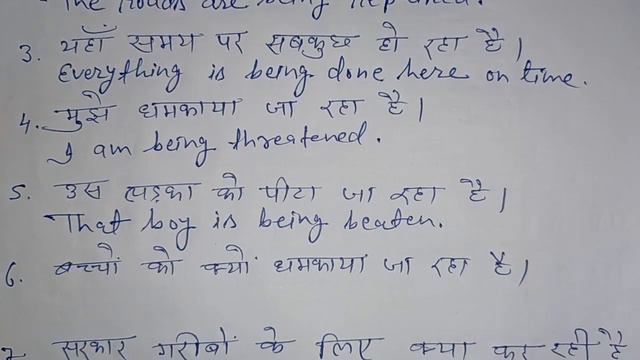 The roads are being repaired.
3. यहाँ समय पर सबकुछ हो रहा है।
Everything is being done here on time.
4. मुझे धमकाया जा रहा है।
I am being threatened.
5. उस लड़का को पीटा जा रहा है।
That boy is being beaten.
6. बच्चों को क्यों धमकाया जा रहा है।
सरकार गरीबों के लिए क्या कर रही है